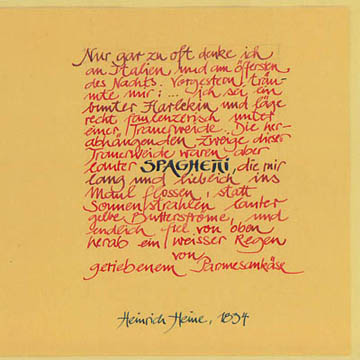 Nur gar zu oft denke ich
an Italien, und am öftersten
des Nachts. Vorgestern träu-
mte mir: ... ich sei ein
bunter Harlekin und läge
recht faulenzerisch unter
einer Trauerweide. Die her-
abhängenden Zweige dieser
Trauerweide waren aber
lauter SPAGHETTI, die mir
lang und lieblich ins
Maul flossen; statt
Sonnenstrahlen lauter
gelbe Butterströme, und
endlich fiel von oben
herab ein weisser Regen
von
geriebenem Parmesankäse
Heinrich Heine, 1834